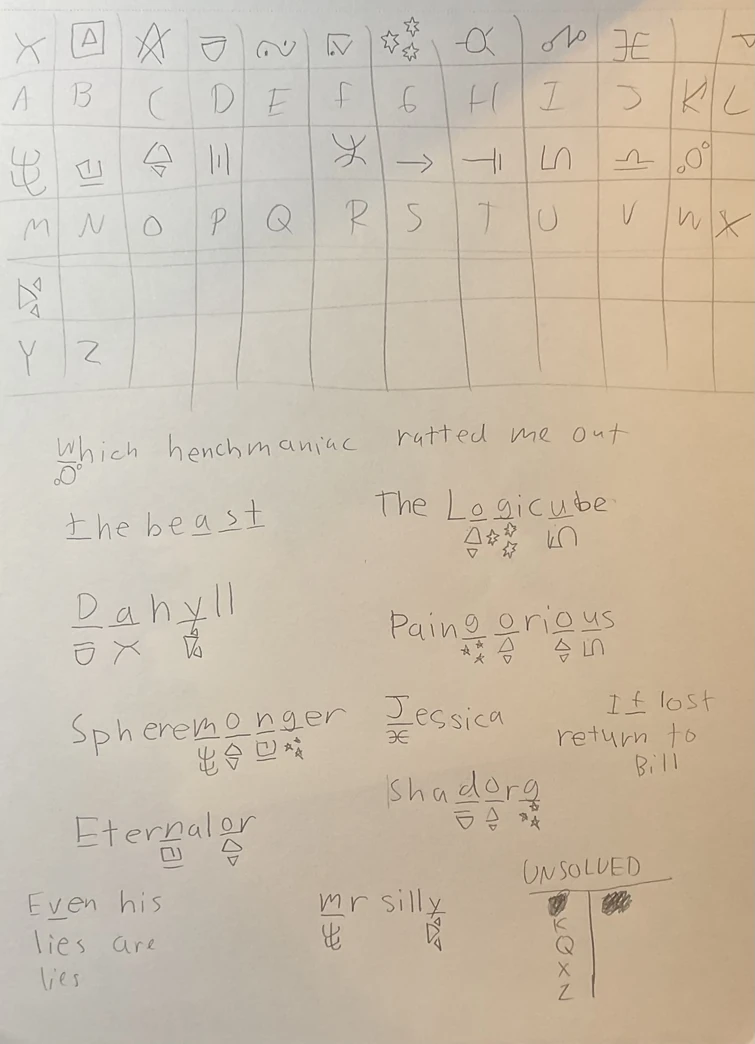 A B C D E F G H I J K L
M N O P Q R S T U V W X
Y Z
Which henchmaniac ratted me out
the beast
The Logicube
Dahyll
Paingorious
Spheremonger
Jessica
If lost
return to
Bill
Eternalor
Shadorg
Even his
lies are
lies
mr silly
UNSOLVED
K
Q
X
Z